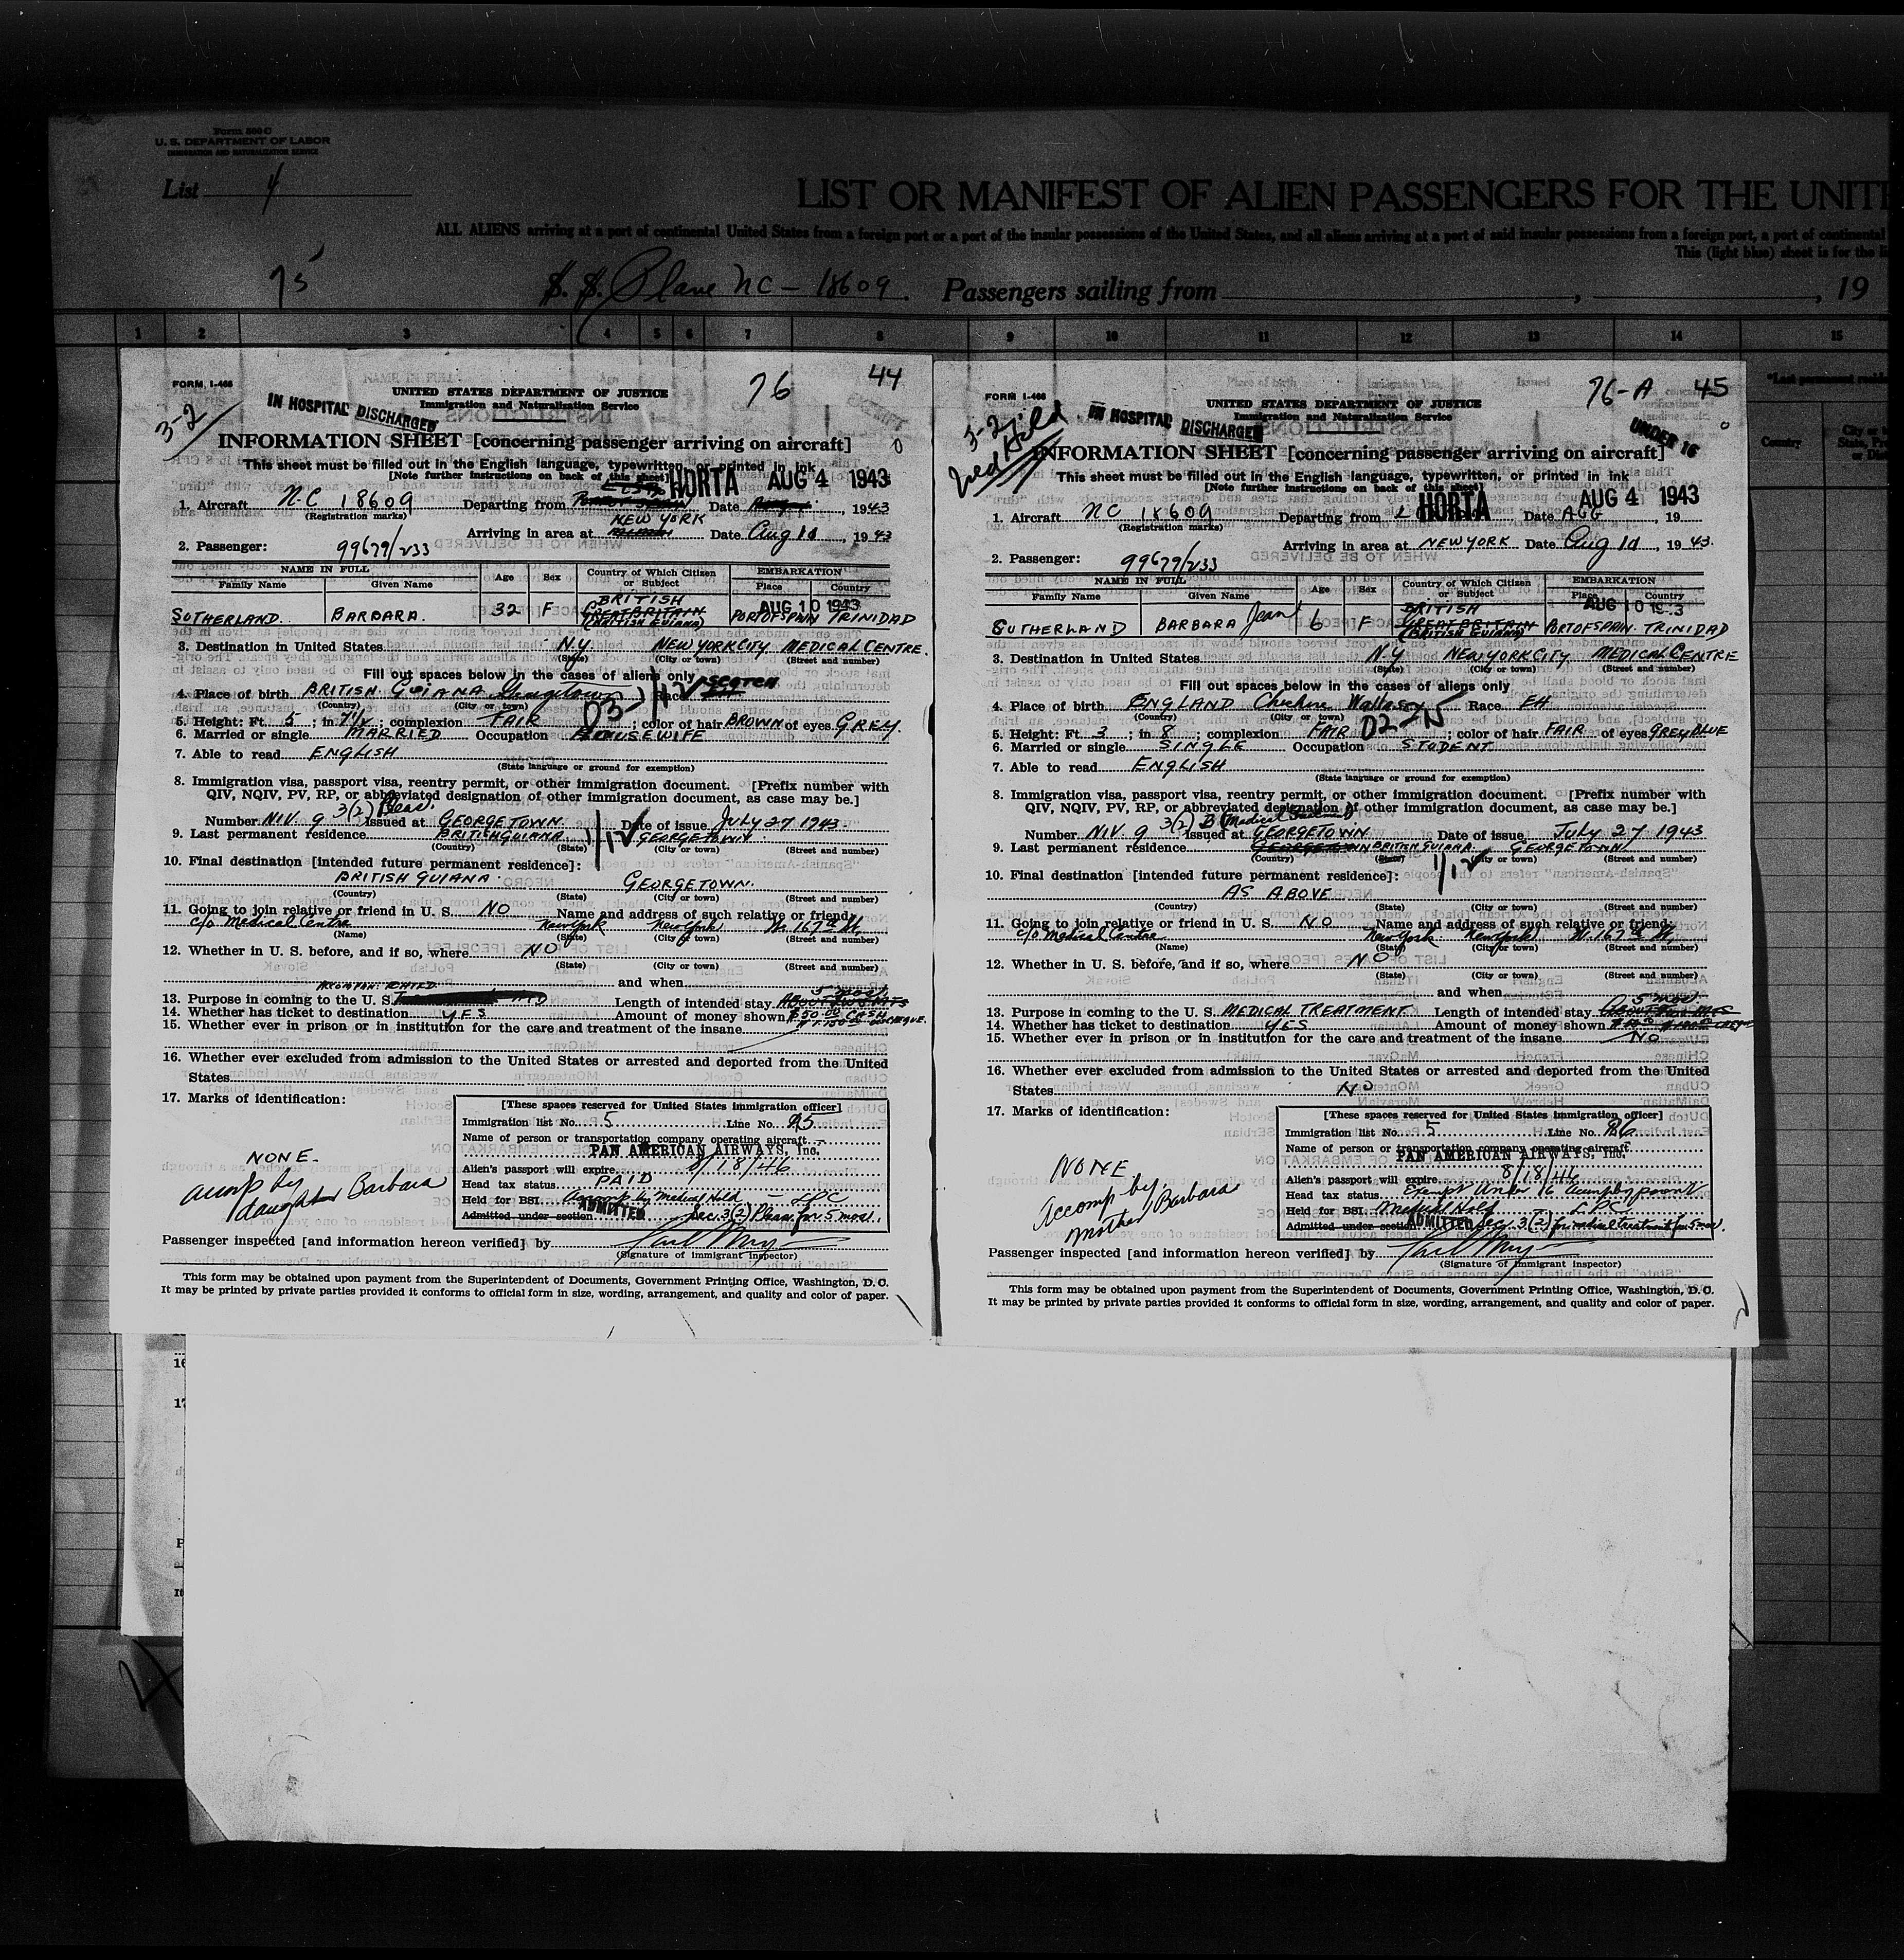 Form 500 C
U. S. DEPARTMENT OF LABOR
IMMIGRATION AND NATURALIZATION SERVICE
List 4
LIST OR MANIFEST OF ALIEN PASSENGERS FOR THE UNIT
ALL ALIENS arriving at a port of continental United States from a foreign port or a port of the insular possessions of the United States, and all aliens arriving at a port of said insular possessions from a foreign port, a port of continental
This (light blue) sheet is for the li
75 S. S. Plane NC - 18609. Passengers sailing from , , 19
1 2 3 4 5 6 7 8 9 10 11 12 13 14 15
FORM I-466
44
76
UNITED STATES DEPARTMENT OF JUSTICE
Immigration and Naturalization Service
3-2
IN HOSPITAL DISCHARGED
INFORMATION SHEET [concerning passenger arriving on aircraft]
This sheet must be filled out in the English language, typewritten, or printed in ink
[Note further instructions on back of this sheet]
HORTA AUG 4 1943
1. Aircraft NC 18609 Departing from Date , 1943
(Registration marks)
NEW YORK
Arriving in area at Date Aug 10, 1943
2. Passenger: 99679/233
NAME IN FULL Age Sex Country of Which Citizen or Subject EMBARKATION
Family Name Given Name Place Country
BRITISH AUG 10 1943
SUTHERLAND. BARBARA. 32 F GREAT BRITAIN (BRITISH GUIANA) PORT OF SPAIN TRINIDAD
3. Destination in United States N.Y. NEW YORK CITY MEDICAL CENTRE.
(State) (City or town) (Street and number)
Fill out spaces below in the cases of aliens only
4. Place of birth BRITISH GUIANA Georgetown Race SCOTCH
(Country) (City or town)
5. Height: Ft. 5; in 7 1/2; complexion FAIR; color of hair BROWN of eyes GREY.
6. Married or single MARRIED Occupation HOUSEWIFE
7. Able to read ENGLISH
(State language or ground for exemption)
8. Immigration visa, passport visa, reentry permit, or other immigration document. [Prefix number with
QIV, NQIV, PV, RP, or abbreviated designation of other immigration document, as case may be.]
3(2) Pleas.
Number NIV 9 Issued at GEORGETOWN. Date of issue JULY 27 1943.
9. Last permanent residence BRITISH GUIANA GEORGETOWN.
(Country) (State) (City or town) (Street and number)
10. Final destination [intended future permanent residence]:
BRITISH GUIANA. GEORGETOWN.
(Country) (State) (City or town) (Street and number)
11. Going to join relative or friend in U. S. NO Name and address of such relative or friend:
c/o Medical Centre New York New York W. 167th St.
(Name) (State) (City or town) (Street and number)
12. Whether in U. S. before, and if so, where NO
(State) (City or town) (Street and number)
and when
13. Purpose in coming to the U. S. Length of intended stay 5 mos. ABOUT TWO MTS
14. Whether has ticket to destination YES Amount of money shown $50.00 CASH
15. Whether ever in prison or in institution for the care and treatment of the insane
16. Whether ever excluded from admission to the United States or arrested and deported from the United
States
17. Marks of identification:
NONE.
accomp by
daughter Barbara
[These spaces reserved for United States immigration officer]
Immigration list No. 5 Line No.
Name of person or transportation company operating aircraft
PAN AMERICAN AIRWAYS, Inc.
Alien's passport will expire 8/18/46
Head tax status PAID
Held for BSI Accomp by Medical Hold - LPC
Admitted under section ADMITTED Sec. 3(2) Pleas. for 5 mos.
Passenger inspected [and information hereon verified] by
(Signature of immigrant inspector)
This form may be obtained upon payment from the Superintendent of Documents, Government Printing Office, Washington, D. C.
It may be printed by private parties provided it conforms to official form in size, wording, arrangement, and quality and color of paper.
FORM I-466
76-A 45
UNITED STATES DEPARTMENT OF JUSTICE
Immigration and Naturalization Service
3-2
Med Hold
IN HOSPITAL DISCHARGED
UNDER 16
INFORMATION SHEET [concerning passenger arriving on aircraft]
This sheet must be filled out in the English language, typewritten, or printed in ink
[Note further instructions on back of this sheet]
HORTA AUG 4 1943
1. Aircraft NC 18609 Departing from Date AGG , 19
(Registration marks)
Arriving in area at NEW YORK Date Aug 10, 1943.
2. Passenger: 99679/233
NAME IN FULL Age Sex Country of Which Citizen or Subject EMBARKATION
Family Name Given Name Place Country
BRITISH AUG 10
SUTHERLAND BARBARA Jean 6 F GREAT BRITAIN (BRITISH GUIANA) PORT OF SPAIN. TRINIDAD
3. Destination in United States N.Y NEW YORK CITY MEDICAL CENTRE
(State) (City or town) (Street and number)
Fill out spaces below in the cases of aliens only
4. Place of birth ENGLAND Cheshire Wallasey Race EH
(Country) (City or town)
5. Height: Ft. 3; in 8; complexion FAIR; color of hair FAIR of eyes GREY BLUE
6. Married or single SINGLE Occupation STUDENT
7. Able to read ENGLISH
(State language or ground for exemption)
8. Immigration visa, passport visa, reentry permit, or other immigration document. [Prefix number with
QIV, NQIV, PV, RP, or abbreviated designation of other immigration document, as case may be.]
3(2) B (Medical Treatment)
Number NIV 9 Issued at GEORGETOWN Date of issue July 27 1943
9. Last permanent residence GEORGETOWN BRITISH GUIANA. GEORGETOWN
(Country) (State) (City or town) (Street and number)
10. Final destination [intended future permanent residence]:
AS ABOVE
(Country) (State) (City or town) (Street and number)
11. Going to join relative or friend in U. S. NO Name and address of such relative or friend:
c/o Medical Centre New York New York W. 167th St,
(Name) (State) (City or town) (Street and number)
12. Whether in U. S. before, and if so, where NO
(State) (City or town) (Street and number)
and when
13. Purpose in coming to the U. S. MEDICAL TREATMENT Length of intended stay 5 mos.
14. Whether has ticket to destination YES Amount of money shown
15. Whether ever in prison or in institution for the care and treatment of the insane NO
16. Whether ever excluded from admission to the United States or arrested and deported from the United
States NO
17. Marks of identification:
NONE
Accomp by
mother Barbara
[These spaces reserved for United States immigration officer]
Immigration list No. 5 Line No.
Name of person or transportation company operating aircraft
PAN AMERICAN AIRWAYS, Inc.
Alien's passport will expire 8/18/46
Head tax status Exempt Under 16 Accomp by parent
Held for BSI Medical Hold LPC
Admitted under section ADMITTED Sec. 3(2) for medical treatment for 5 mos.
Passenger inspected [and information hereon verified] by
(Signature of immigrant inspector)
This form may be obtained upon payment from the Superintendent of Documents, Government Printing Office, Washington, D. C.
It may be printed by private parties provided it conforms to official form in size, wording, arrangement, and quality and color of paper.